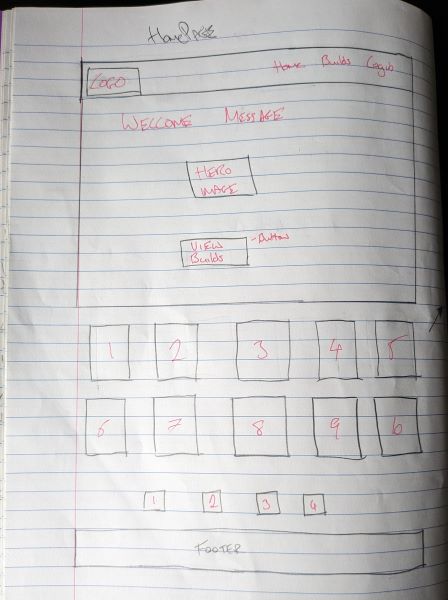 HomePAGE
Home Builds Login
LOGO
WELCOME MESSAGE
HERO
IMAGE
VIEW
Builds
-Button
1 2 3 4 5
6 7 8 9 10
1 2 3 4
FOOTER